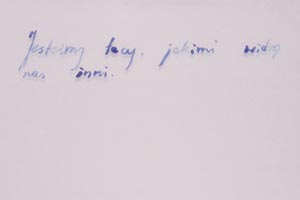 Jesteśmy tacy, jakimi widzą
nas inni.